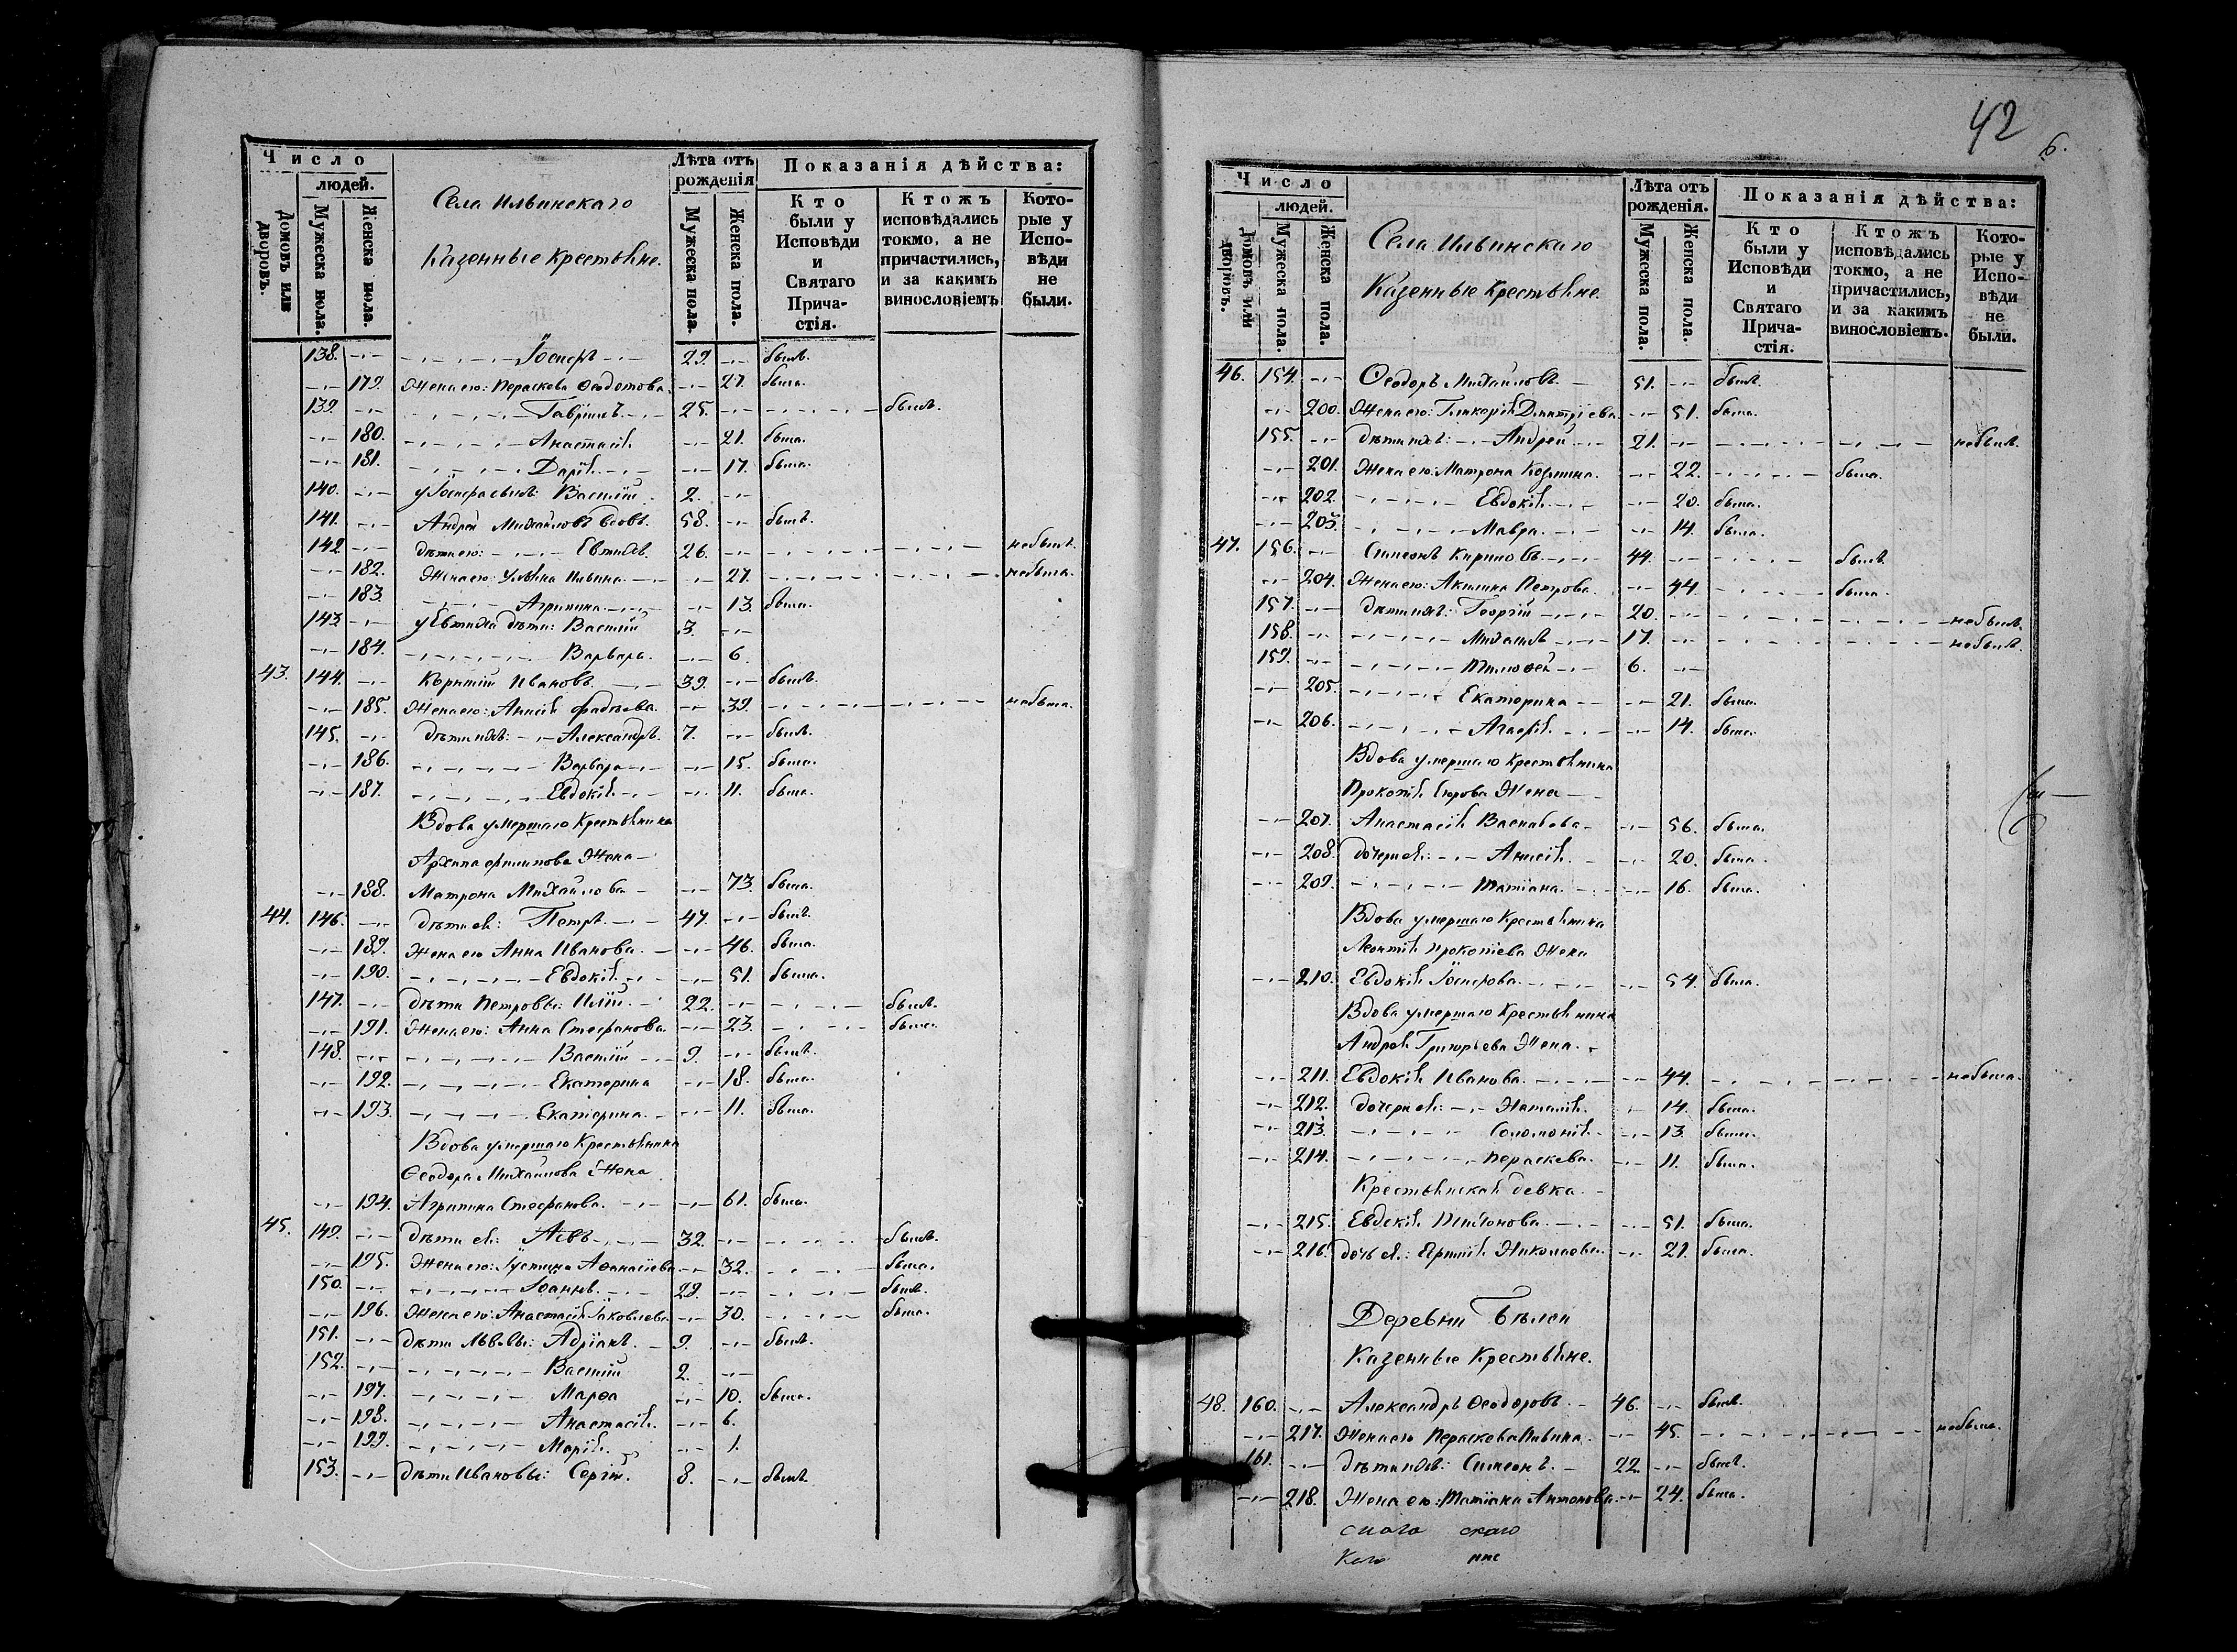 Число
людей.
Домовъ или дворовъ.
Мужеска пола.
Женска пола.
Села Ильинскаго
Казенные Крестьяне.
Лѣта отъ рожденія
Мужеска пола.
Женска пола.
Показанія дѣйства:
Кто были у Исповѣди и Святаго Причастія.
Ктожъ исповѣдались токмо, а не причастились, и за какимъ винословіемъ
Которые у Исповѣди не были.
138. Іосифъ 29. былъ.
179. Жена его: Параскева Ѳеодотова 27. была.
139. Гавріилъ 25. былъ.
180. Анастасія 21. была.
181. Дарія 17. была.
140. у Іосифа сынъ: Василій 2.
141. Андрей Михайловъ вдовъ. 58. былъ.
142 дѣти его: Евтихій 26. небылъ.
182. Жена его: Ульяна Ильина 27. небыла.
183. Агрипина 13. была.
143. у Евтихія дѣти: Василій 3.
184. Варвара. 6.
43. 144. Ивановъ 39. былъ.
185. Жена его: Анисія Фадѣева. 39. небыла.
145. дѣти ихъ: Александръ. 7. былъ.
186. Варвара 15. была.
187. Евдокія 11. была.
Вдова умершаго Крестьянина
Архипа Жена
188. Матрона Михайлова 73. была.
44. 146. дѣти ея: Петръ 47. былъ.
189. Жена его Анна Иванова. 46. была.
190. Евдокія 51. была.
147. дѣти Петровы: Илія. 22. былъ.
191. Жена его: Анна Стефанова. 23. была.
148. Василій 9. былъ.
192. Екатерина 18. была.
193. Екатерина. 11. была.
Вдова умершаго Крестьянина
Ѳеодора Михайлова Жена
194. Агрипина Стефанова. 61. была.
45. 149. дѣти ея: Левъ 32. былъ.
195. Жена его: Іустина Аѳанасіева 32. была.
150. Іоаннъ. 29. былъ.
196. Жена его: Анастасія Іаковлева 30. была.
151. дѣти Львовы: Адріанъ. 9. былъ.
152. Василій 2.
197. Марѳа 10. была.
198. Анастасія. 6.
199. Марія. 1.
153. дѣти Ивановы: Сергій. 8. былъ.
42
6.
Число
людей.
Домовъ или дворовъ.
Мужеска пола.
Женска пола.
Села Ильинскаго
Казенные Крестьяне.
Лѣта отъ рожденія.
Мужеска пола.
Женска пола.
Показанія дѣйства:
Кто были у Исповѣди и Святаго Причастія.
Ктожъ исповѣдались токмо, а не причастились, и за какимъ винословіемъ.
Которые у Исповѣди не были.
46. 154. Ѳеодоръ Михайловъ. 51. былъ.
200. Жена его: Гликерія Димитріева 51. была.
155. дѣти ихъ: Андрей 21. небылъ.
201. Жена его: Матрона Козмина. 22. была.
202. Евдокія 20. была.
203. Мавра. 14. была.
47. 156. Симеонъ Кириловъ. 44. былъ.
204. Жена его: Акилина Петрова 44. была.
157. дѣти ихъ: Георгій 20. небылъ.
158. Михаилъ 17. небылъ.
159. Тимоѳей 6.
205. Екатерина 21. была.
206. Агафія. 14. была.
Вдова умершаго Крестьянина
Прокопія Жена
207. Анастасія Васильева 56. была.
208. дочери ея: Анисія. 20. была.
209. Татіана. 16. была.
Вдова умершаго Крестьянина
Леонтія Прокопіева Жена
210. Евдокія Іосифова. 54. была.
Вдова умершаго Крестьянина
Андрея Григорьева Жена.
211. Евдокія Иванова. 44. небыла.
212. дочери ея: Наталія. 14. была.
213. Соломонія. 13. была.
214. Параскева. 11. была.
Крестьянская девка.
215. Евдокія 51. была.
216. дочь ея: Николаева 21. была.
Деревни Бѣлеи
Казенные Крестьяне.
48. 160. Александръ Ѳеодоровъ. 46. былъ.
217. Жена его Параскева Ильина 45. небыла.
161. дѣти ихъ: Симеонъ. 22. былъ.
218. Жена его: Татіана Антонова. 24. была.